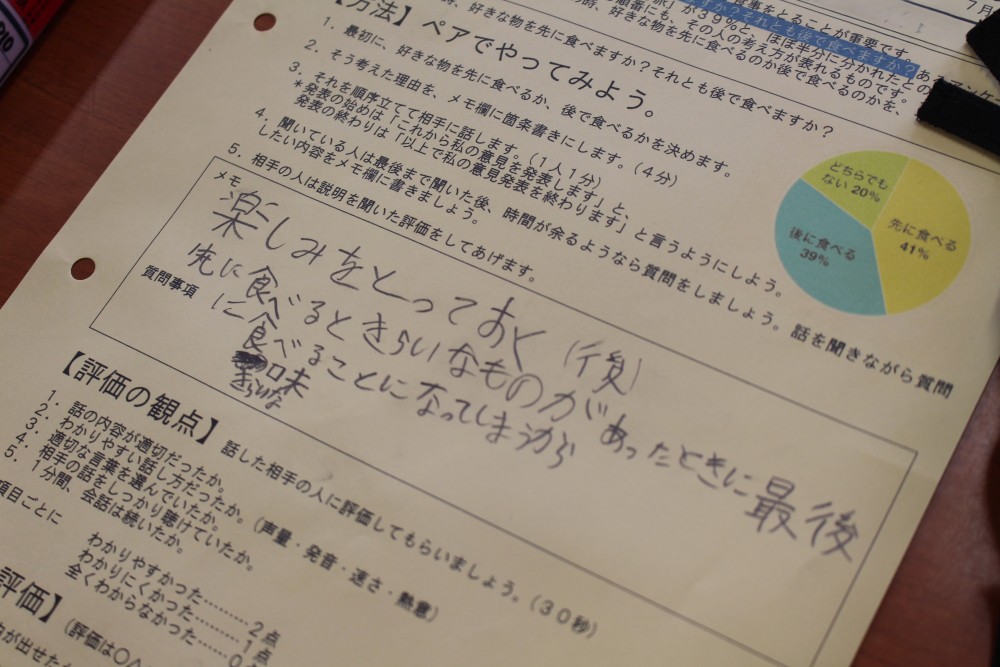 7月
事をとることが重要です。
それとも後で食べますか？
が39％と、ほぼ半分に分かれたとの
順番にも、その人の考え方が表れるものです。
好きな物を先に食べるのか後で食べるのかを、
好きな物を先に食べますか？それとも後で食べますか？
【方法】ペアでやってみよう。
1．最初に、好きな物を先に食べるか、後で食べるかを決めます。
2．そう考えた理由を、メモ欄に箇条書きにします。（4分）
3．それを順序立てて相手に話します。（1人1分）
＊発表の始めは「これから私の意見を発表します」と、
発表の終わりは「以上で私の意見発表を終わります」と言うようにしよう。
4．聞いている人は最後まで聞いた後、時間が余るようなら質問をしましょう。話を聞きながら質問
したい内容をメモ欄に書きましょう。
5．相手の人は説明を聞いた評価をしてあげます。
どちらでも
ない 20%
先に食べる
41%
後に食べる
39%
メモ
楽しみをとっておく
先に食べるときらいなものがあったときに最後
に食べることになってしまうから
口味
きらいな
質問事項
【評価の観点】話した相手の人に評価してもらいましょう。（30秒）
1．話の内容が適切だったか。
2．わかりやすい話し方だったか。（声量・発音・速さ・熱意）
3．適切な言葉を選んでいたか。
4．相手の話をしっかり聴けていたか。
5．1分間、会話は続いたか。
項目ごとに
わかりやすかった………2点
わかりにくかった………1点
全くわからなかった……0
評価】（評価は〇